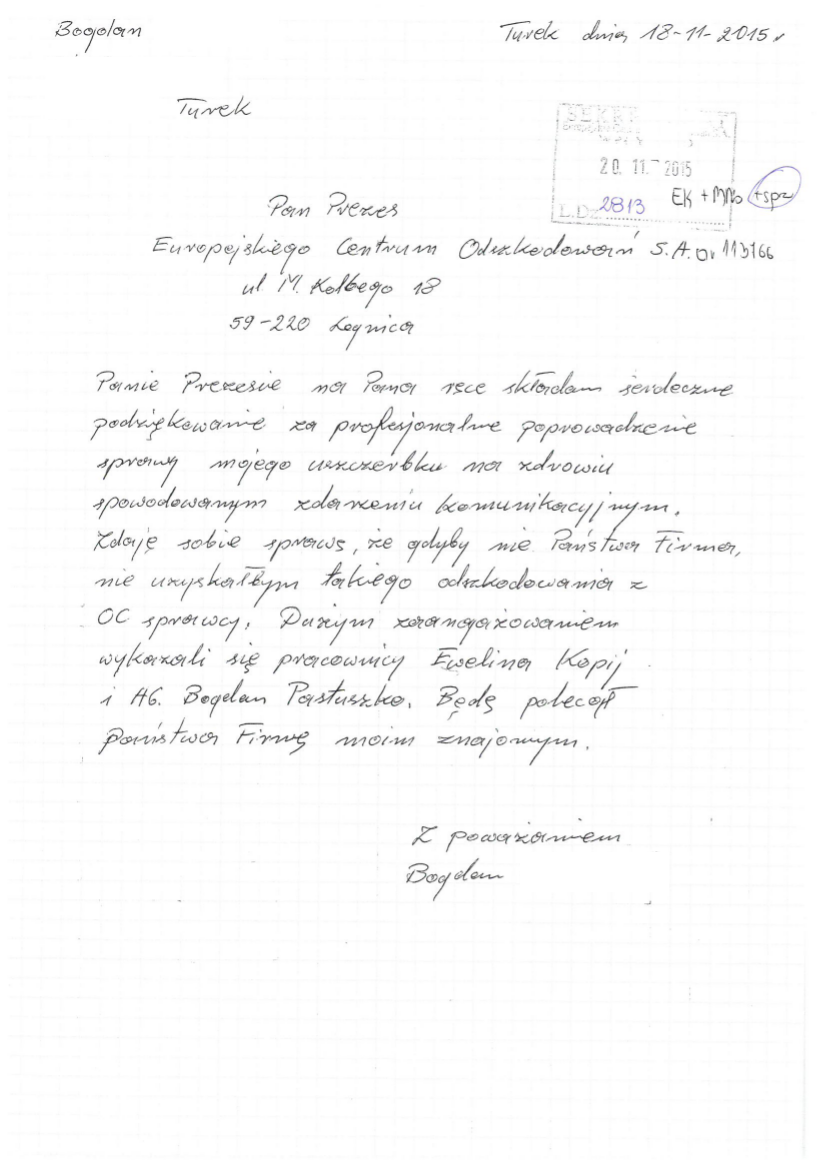 Bogdan
Turek dnia 18-11-2015 r
Turek
20. 11. 2015
L.Dz. 2813
EK + MNo +spz
Pan Prezes
Europejskiego Centrum Odszkodowań S.A.
ul M. Kolbego 18
59-220 Legnica
Panie Prezesie na Pana ręce składam serdeczne
podziękowanie za profesjonalne poprowadzenie
sprawy mojego uszczerbku na zdrowiu
spowodowanym zdarzeniu komunikacyjnym.
Zdaję sobie sprawę, że gdyby nie Państwa Firma,
nie uzyskałbym takiego odszkodowania z
OC sprawcy. Dużym zaangażowaniem
wykazali się pracownicy Ewelina Kopij
i AG. Bogdan Pastuszko. Będę polecał
Państwa Firmę moim znajomym.
Z poważaniem
Bogdan